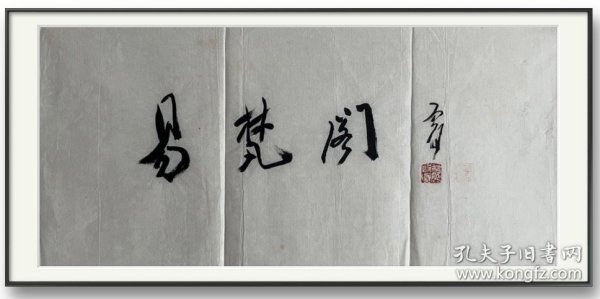 易梵阁
孔夫子旧书网
www.kongfz.com